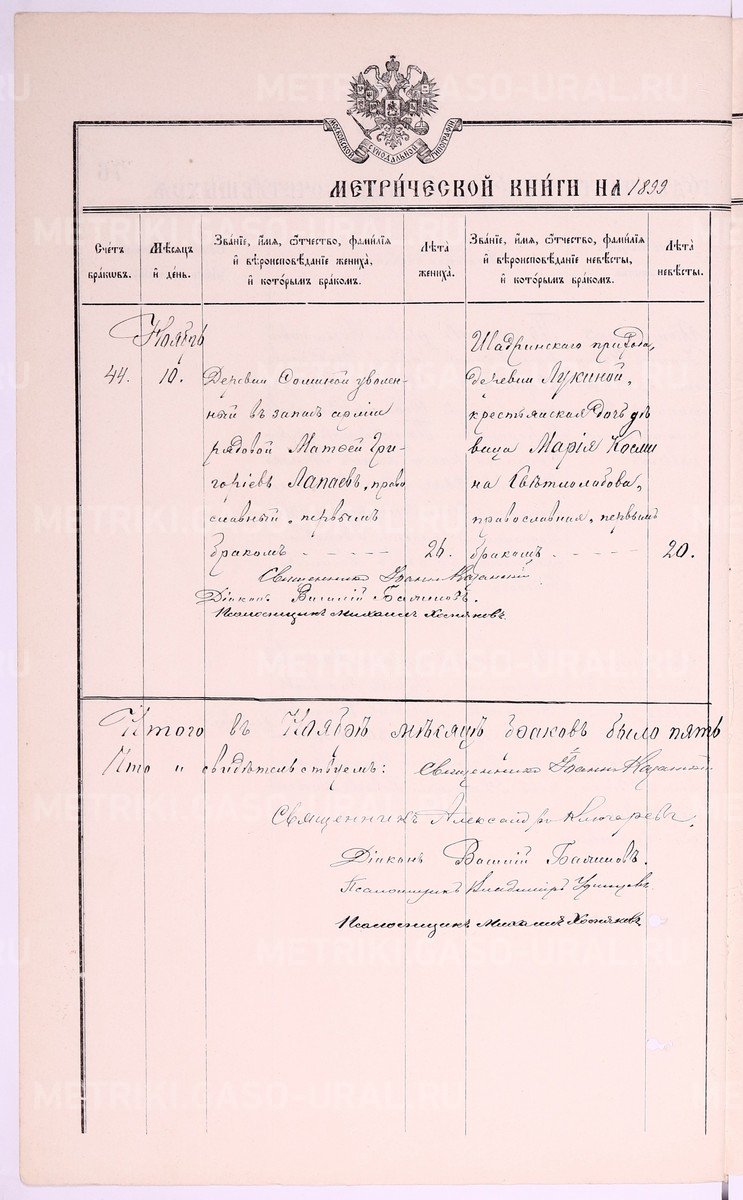 МОСКОВСКОЙ СѴНОДАЛЬНОЙ ТИПОГРАФІИ
МЕТРИ́ЧЕСКОЙ КНИ́ГИ НА 1899
Счетъ бра́ковъ.
Мѣсяцъ и҆ день.
Зва́нїе, и҆́мѧ, ѻ҆́тчество, фамилїѧ и҆ вѣроисповѣданїе жениха̀, и҆ кото́рымъ бра́комъ.
Лѣта̀ жениха̀.
Зва́нїе, и҆́мѧ, ѻ҆́тчество, фамилїѧ и҆ вѣроисповѣданїе невѣсты, и҆ кото́рымъ бра́комъ.
Лѣта̀ невѣсты.
Ноябрь
44.
10.
Деревни Соминой уволен-
ный въ запасъ арміи
рядовой Матѳей Гри-
горіевъ Лапаевъ, право
славный, первымъ
бракомъ - - - - -
26.
Шадринскаго прихода,
деревни Лукиной,
крестьянская дочь дѣ
вица Марія Косми
на Свѣтлолобова,
православная, первымъ
бракомъ. - - - - -
20.
Священникъ Іоаннъ Казанскій
Діаконъ Василій
Псаломщикъ Михаилъ Хосняковъ.
Итого въ Ноябрѣ мѣсяцѣ браковъ было пять
Что и свидѣтельствуемъ: Священникъ Іоаннъ Казанскій
Священникъ Александръ Ключаревъ.
Діаконъ Василій
Псаломщикъ Владиміръ
Псаломщикъ Михаилъ Хосняковъ.
METRIKI.GASO-URAL.RU